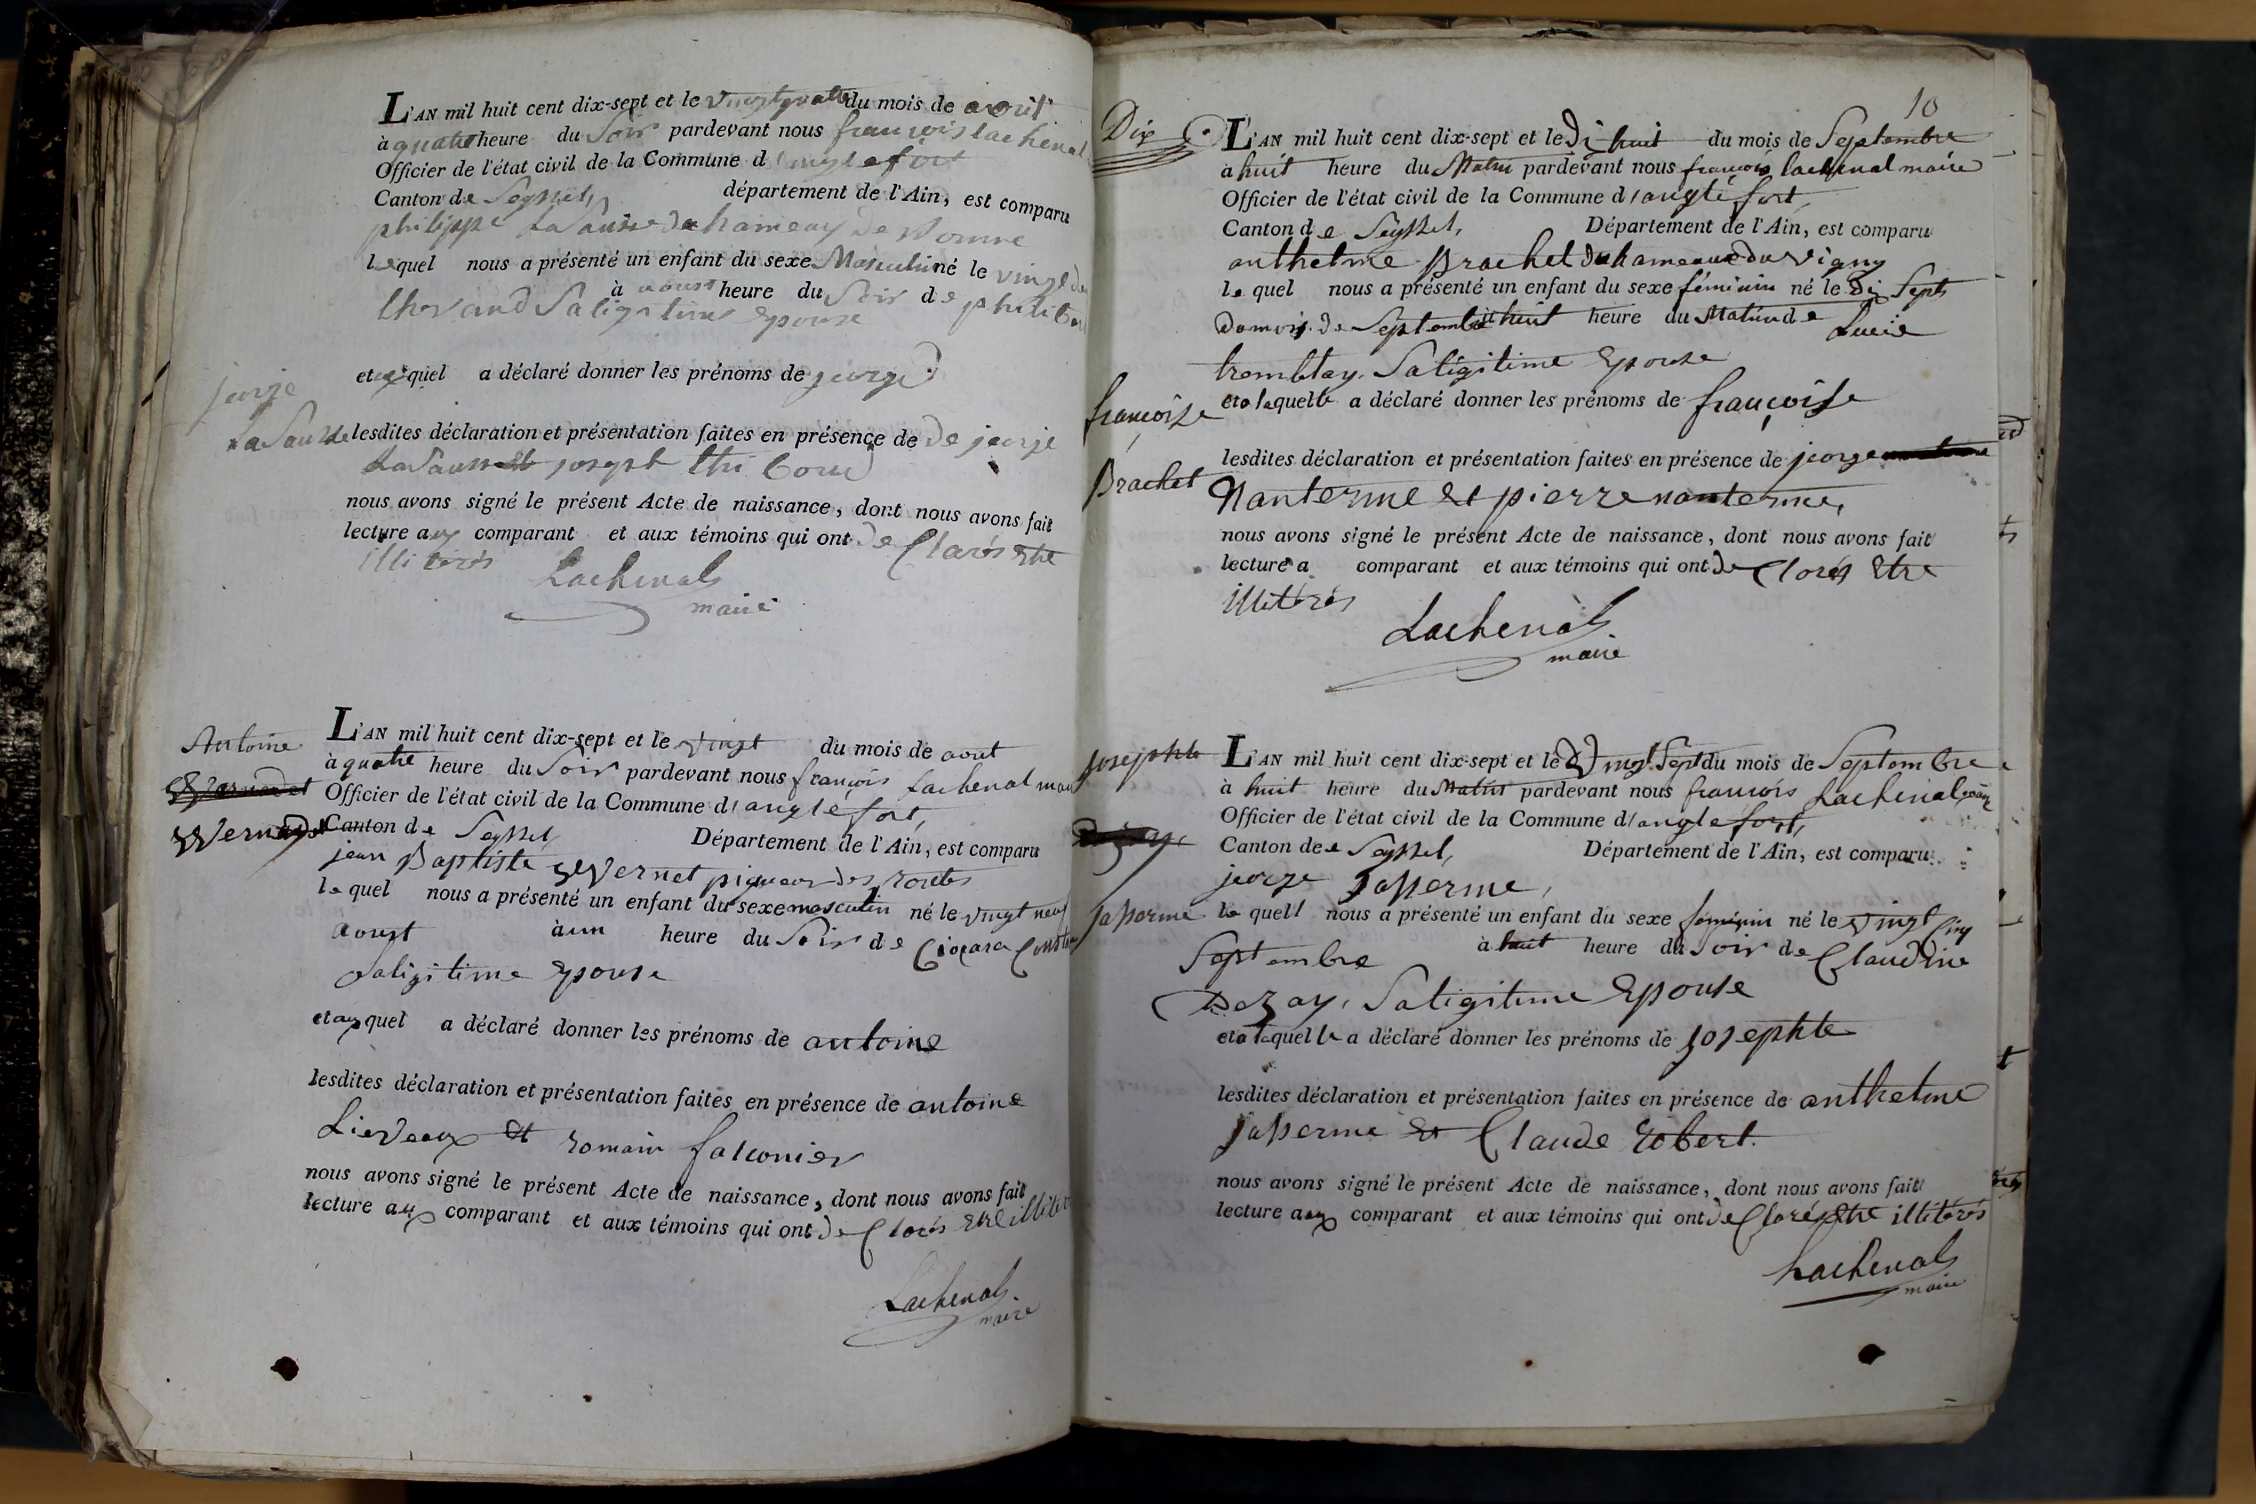 L'AN mil huit cent dix-sept et le vingt quatre du mois de
à quatre heure du Soir pardevant nous françois lachenal
Officier de l'état civil de la Commune d'anglefort
Canton de Seyssel, département de l'Ain, est comparu
philippe LaSausse du hameaux de
lequel nous a présenté un enfant du sexe Masculin né le
à heure du Soir de
Saligitime Epouse
et auquel a déclaré donner les prénoms de jeorge
jeorje
LaSausse
lesdites déclaration et présentation faites en présence de de jeorje
LaSausse et joseph thiboud
nous avons signé le présent Acte de naissance, dont nous avons fait
lecture aux comparant et aux témoins qui ont de Clarés Etre
illiterés
Lachenal
maire
Antoine
Wernet
L'AN mil huit cent dix-sept et le vingt du mois de aout
à quatre heure du Soir pardevant nous françois Lachenal
Officier de l'état civil de la Commune d'anglefort,
Canton de Seyssel Département de l'Ain, est comparu
jean Baptiste Wernet piqueur des routes
lequel nous a présenté un enfant du sexe masculin né le vingt neuf
aoust à un heure du Soir de
Saligitime Epouse
et auquel a déclaré donner les prénoms de antoine
lesdites déclaration et présentation faites en présence de antoine
Lieveaux et romain falconier
nous avons signé le présent Acte de naissance, dont nous avons fait
lecture aux comparant et aux témoins qui ont de Clarés Etre
Lachenal
maire
10
Dix
L'AN mil huit cent dix-sept et le Di huit du mois de Septembre
à huit heure du Matin pardevant nous françois lachenal maire
Officier de l'état civil de la Commune d'anglefort,
Canton de Seyssel, Département de l'Ain, est comparu
anthelme Brachet du hameaux du vigny
lequel nous a présenté un enfant du sexe féminin né le Dix Sept
Du mois de Septembre à huit heure du Matin de Lucie
tremblay, Saligitime Epouse
et a laquelle a déclaré donner les prénoms de françoise
françoise
Brachet
lesdites déclaration et présentation faites en présence de jeorge
Nanterme et pierre nanterme,
nous avons signé le présent Acte de naissance, dont nous avons fait
lecture a comparant et aux témoins qui ont de Clarés Etre
illiterés
Lachenal
maire
josephte
jasserme
L'AN mil huit cent dix-sept et le vingt Sept du mois de Septembre
à huit heure du Matin pardevant nous francois Lachenal
Officier de l'état civil de la Commune d'anglefort,
Canton de Seyssel, Département de l'Ain, est comparu
jeorge jasserme,
lequel nous a présenté un enfant du sexe féminin né le vingt Cinq
Septembre à huit heure du Soir de Claudine
Dezay, Saligitime Epouse
et a laquelle a déclaré donner les prénoms de josephte
lesdites déclaration et présentation faites en présence de anthelme
jasserme et Claude robert.
nous avons signé le présent Acte de naissance, dont nous avons fait
lecture aux comparant et aux témoins qui ont de Claré Etre illiterés
Lachenal
maire